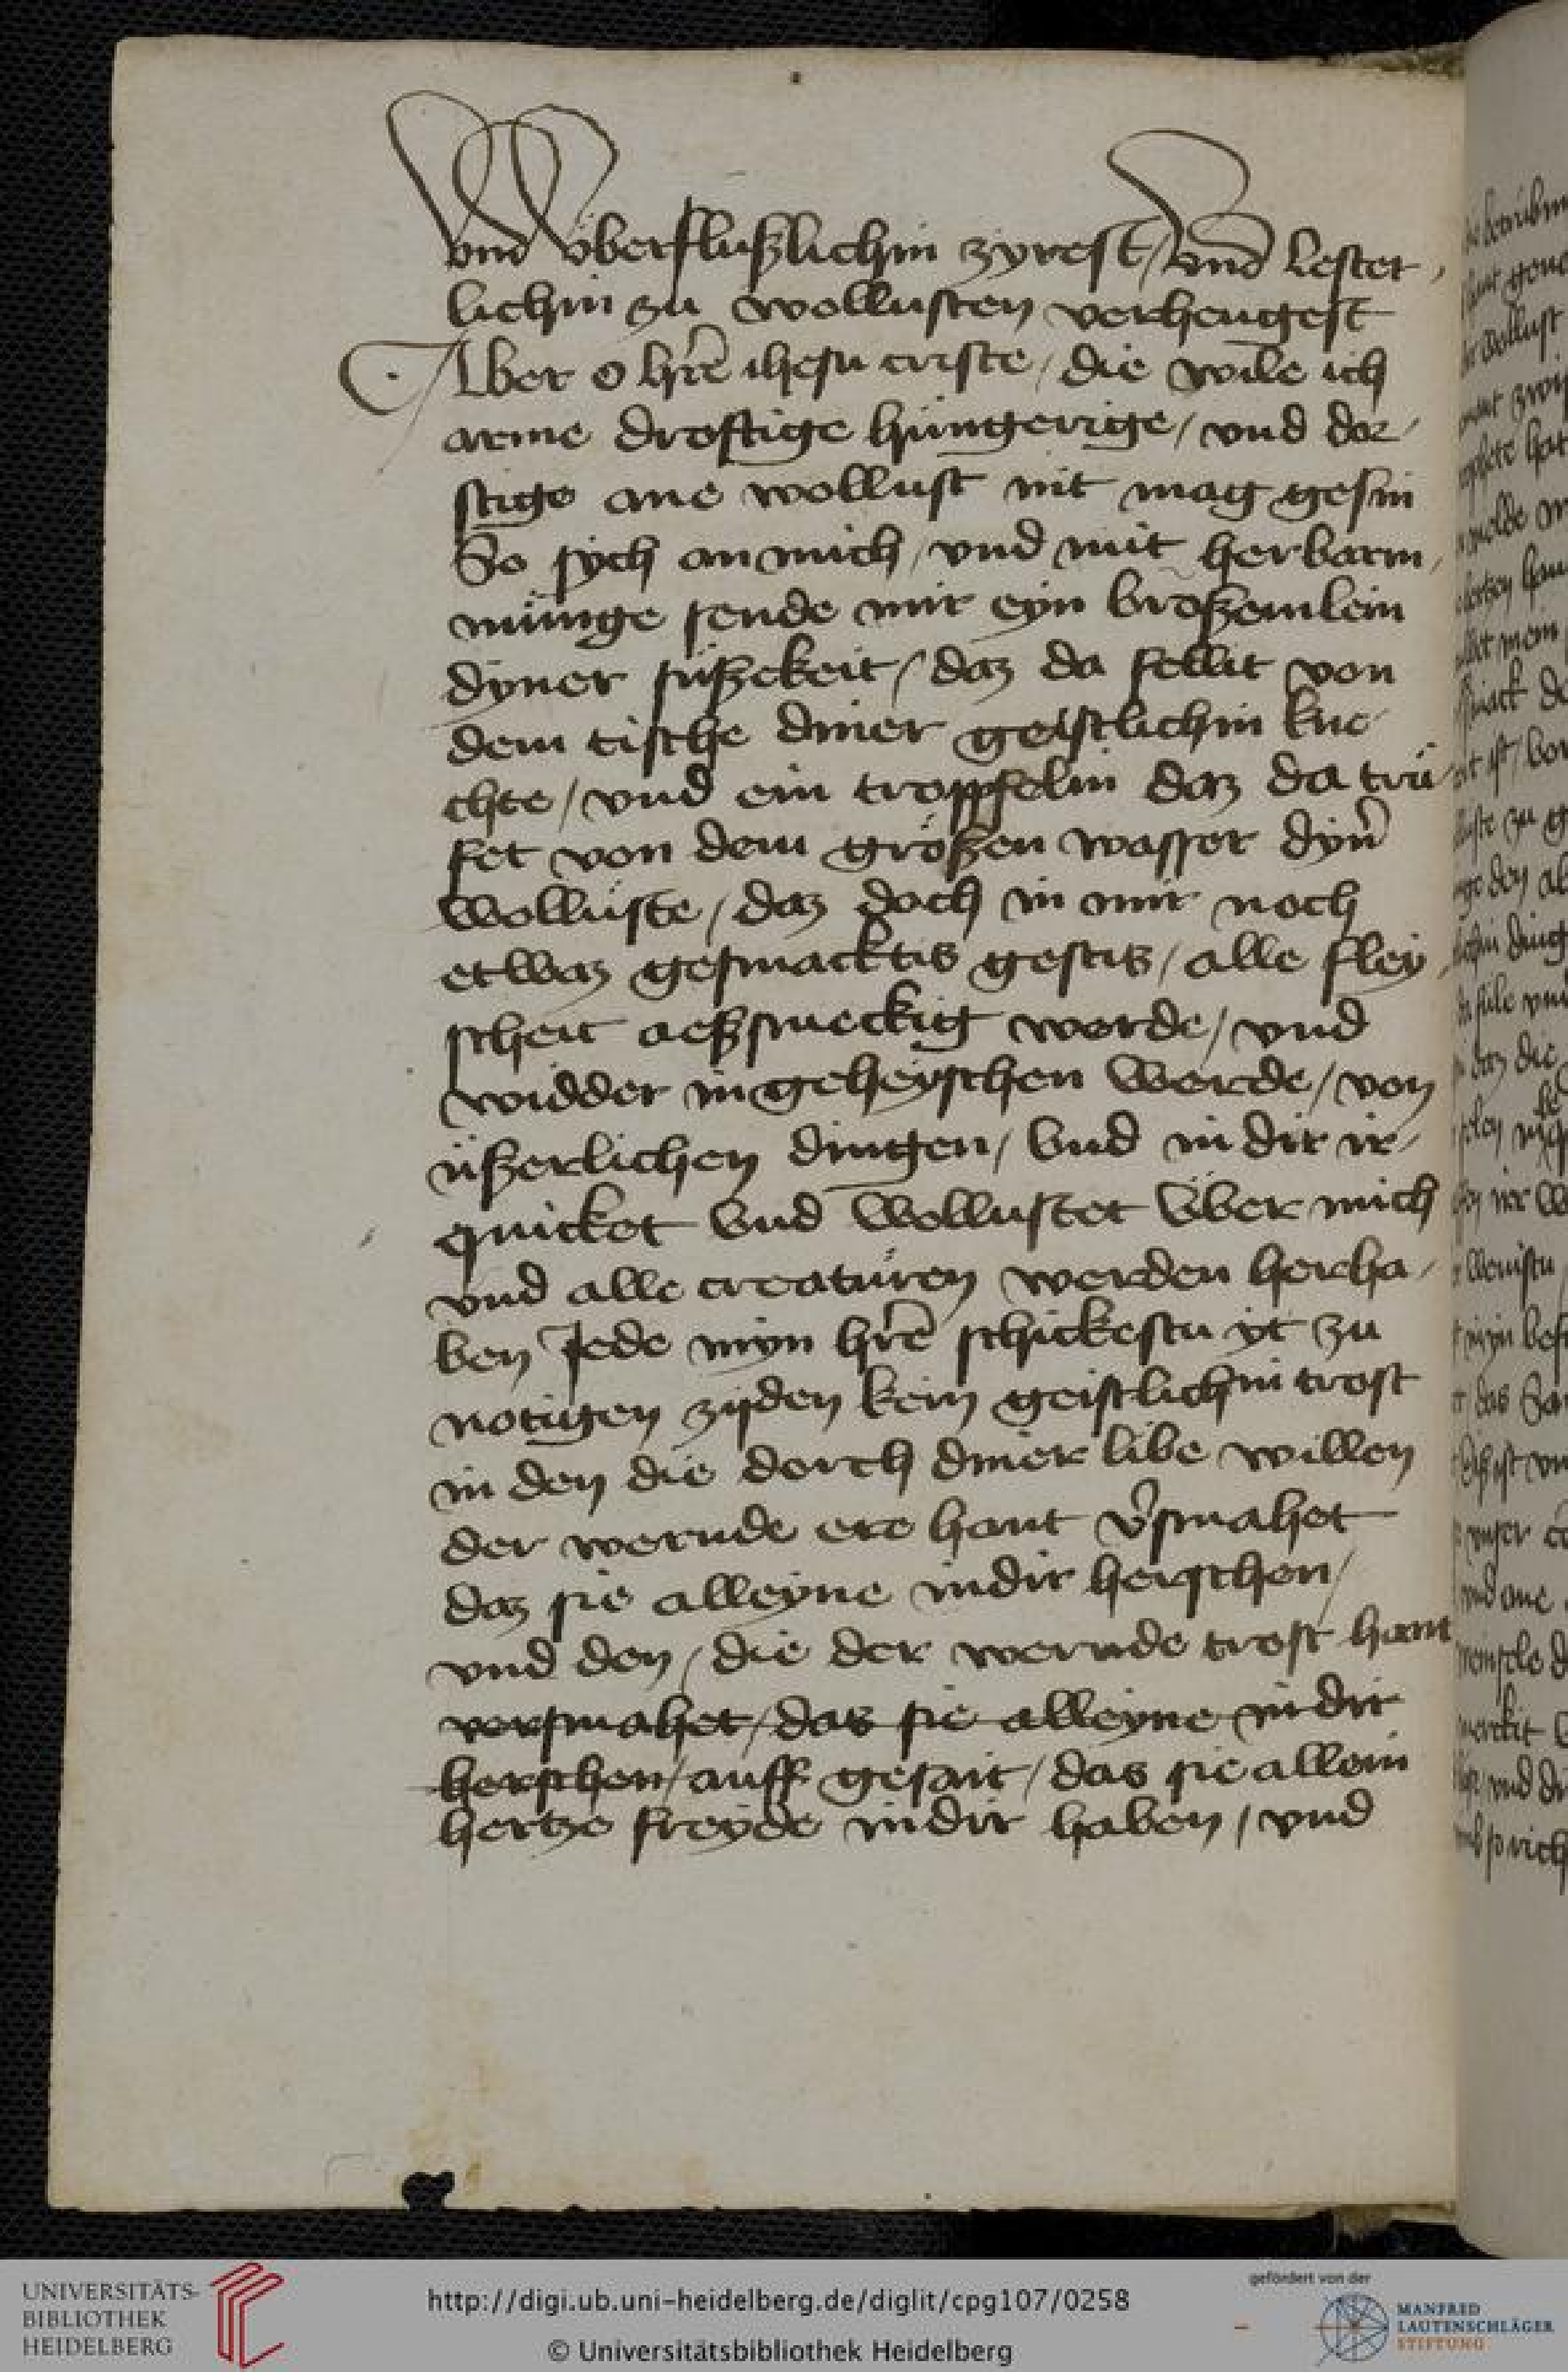 vnd überflußlichin zyrest / vnd lestet,
lichin zu wollusten verhengest
Aber o hre ihesu criste / die wile ich
arme drostige hüngerige / vnd dor-
stige ane wollust nit mag gesin
So sych an mich / vnd mit herbarm,
münge sende mir eyn broßemlein
dyner süßekeit / daz da fellit von
dem tische diner geistlichin kne-
chte / vnd ein troppfelin daz da trü-
fet von dem größen wasser dyn
wollüste / daz doch in mir noch
etwaz gesmacktis gestis / alle fley,
scheit aeßsmeckig werde / vnd
widder in geheyschen werde / von
üßerlichen dingen / vnd in dir ir-
quicket vnd wollustet über mich
vnd alle creatüren werden herha-
ben Jede myn hre schickestu yt zu
notigen zijden kein geistlichin trost
in den die dorch diner libe willen
der wernde ere hant vsmahet
daz sie alleyne in dir herschen /
vnd den / die der wernde trost hant
versmahet / das sie alleyne in dir
herschen / auff gesait / das sie allein
hertze freyde in dir haben / vnd
UNIVERSITÄTS-
BIBLIOTHEK
HEIDELBERG
http://digi.ub.uni-heidelberg.de/diglit/cpg107/0258
© Universitätsbibliothek Heidelberg
gefördert von der
MANFRED
LAUTENSCHLÄGER
STIFTUNG